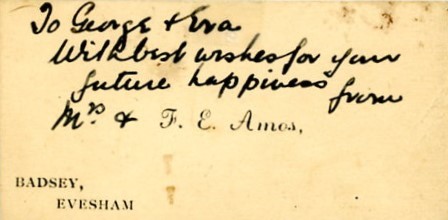 To George & Eva
With best wishes for your
future happiness
from
Mrs & F. E. Amos,
BADSEY,
EVESHAM